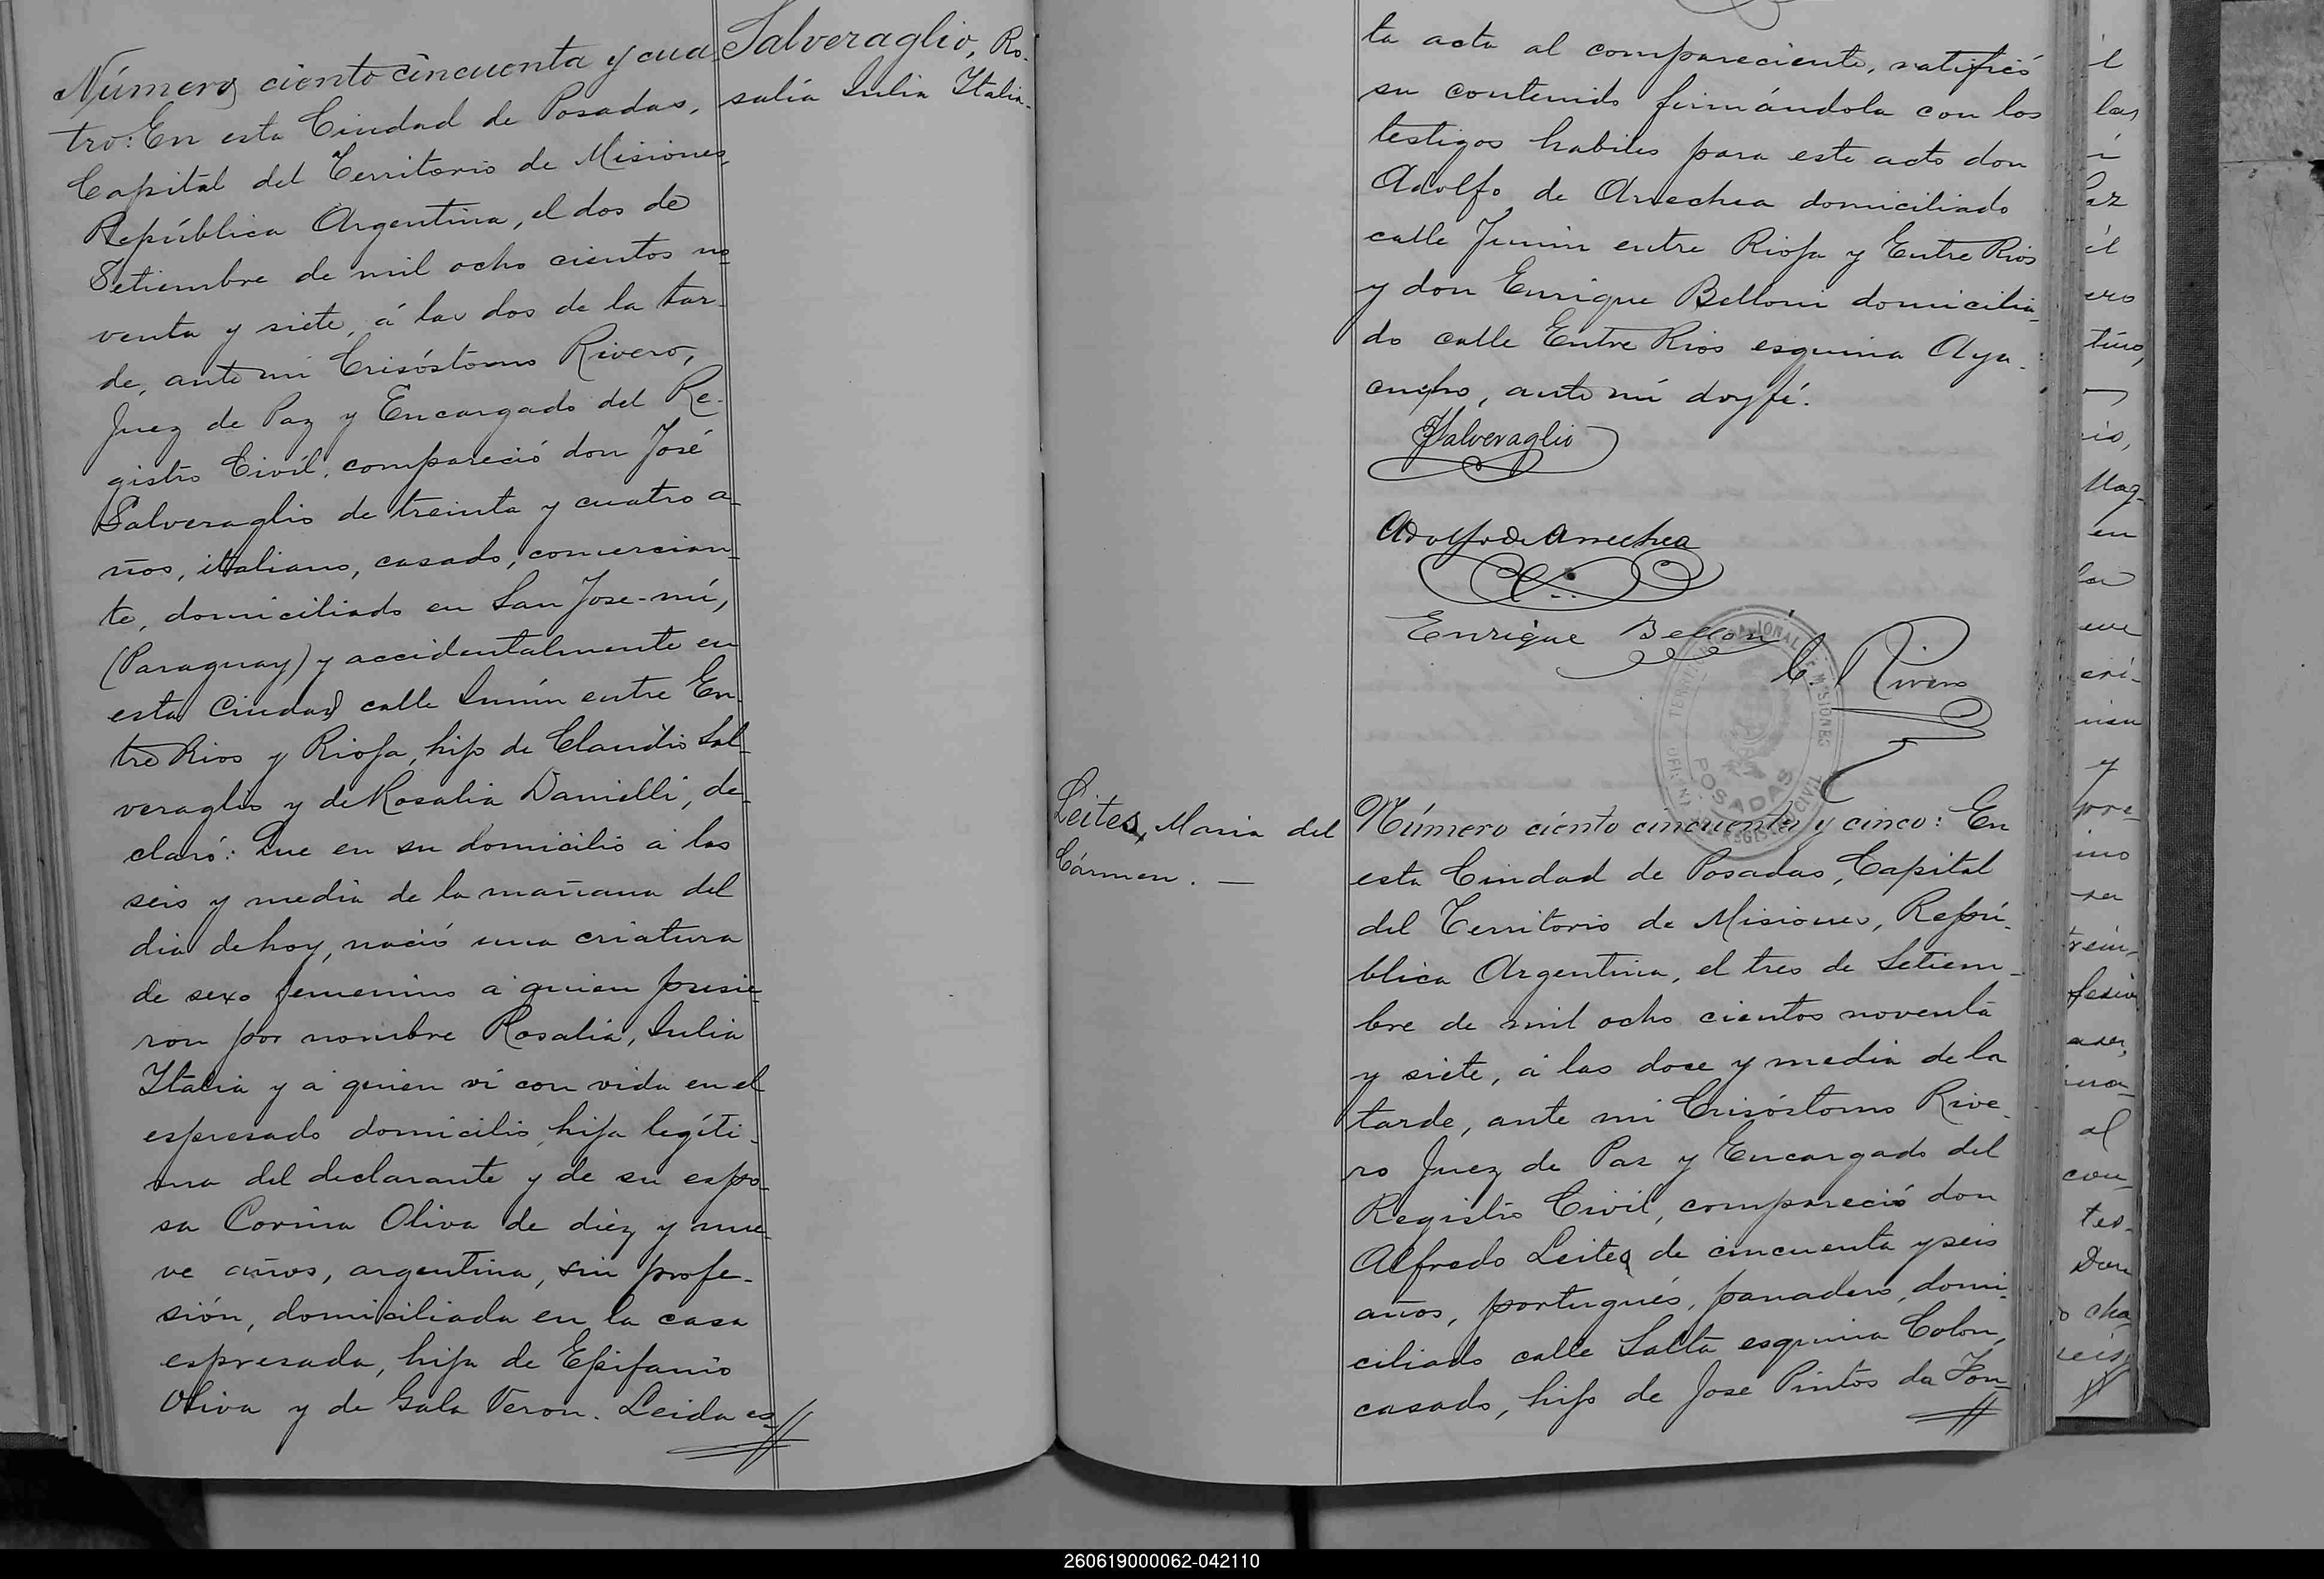 Salveraglio, Ro-
salia Julia Italia.
Número ciento cincuenta y cua-
tro: En esta Ciudad de Posadas,
Capital del Territorio de Misiones,
República Argentina, el dos de
Setiembre de mil ocho cientos no-
venta y siete, á las dos de la tar-
de, ante mi Crisóstomo Rivero,
Juez de Paz y Encargado del Re-
gistro Civil, compareció don José
Salveraglio de treinta y cuatro a-
ños, italiano, casado, comercian-
te, domiciliado en San Jose-mí,
(Paraguay) y accidentalmente en
esta Ciudad calle Junin entre En-
tre Rios y Rioja, hijo de Claudio Sal-
veraglio y de Rosalia Danielli, de-
claró: Que en su domicilio a las
seis y media de la mañana del
dia de hoy, nació una criatura
de sexo femenino a quien pusie-
ron por nombre Rosalia, Julia
Italia y a quien ví con vida en el
espresado domicilio, hija legíti-
ma del declarante y de su espo-
sa Corina Oliva de diez y nue-
ve años, argentina, sin profe-
sión, domiciliada en la casa
espresada, hija de Epifanio
Oliva y de Gala Veron. Leida es-
ta acta al compareciente, ratificó
su contenido firmándola con los
testigos habiles para este acto don
Adolfo de Arrechea domiciliado
calle Junin entre Rioja y Entre Rios
y don Enrique Belloni domicilia-
do calle Entre Rios esquina Aya-
cucho, ante mí doy fé.
JSalveraglio
Adolfo de Arrechea
Enrique Belloni
C. Rivero
POSADAS
Leites, Maria del
Cármen. —
Número ciento cincuenta y cinco: En
esta Ciudad de Posadas, Capital
del Territorio de Misiones, Repú-
blica Argentina, el tres de Setiem-
bre de mil ocho cientos noventa
y siete, á las doce y media de la
tarde, ante mi Crisóstomo Rive-
ro Juez de Paz y Encargado del
Registro Civil, compareció don
Alfredo Leites de cincuenta y seis
años, portugués, panadero, domi-
ciliado calle Salta esquina Colon,
casado, hijo de Jose Pintos da Fon-
260619000062-042110